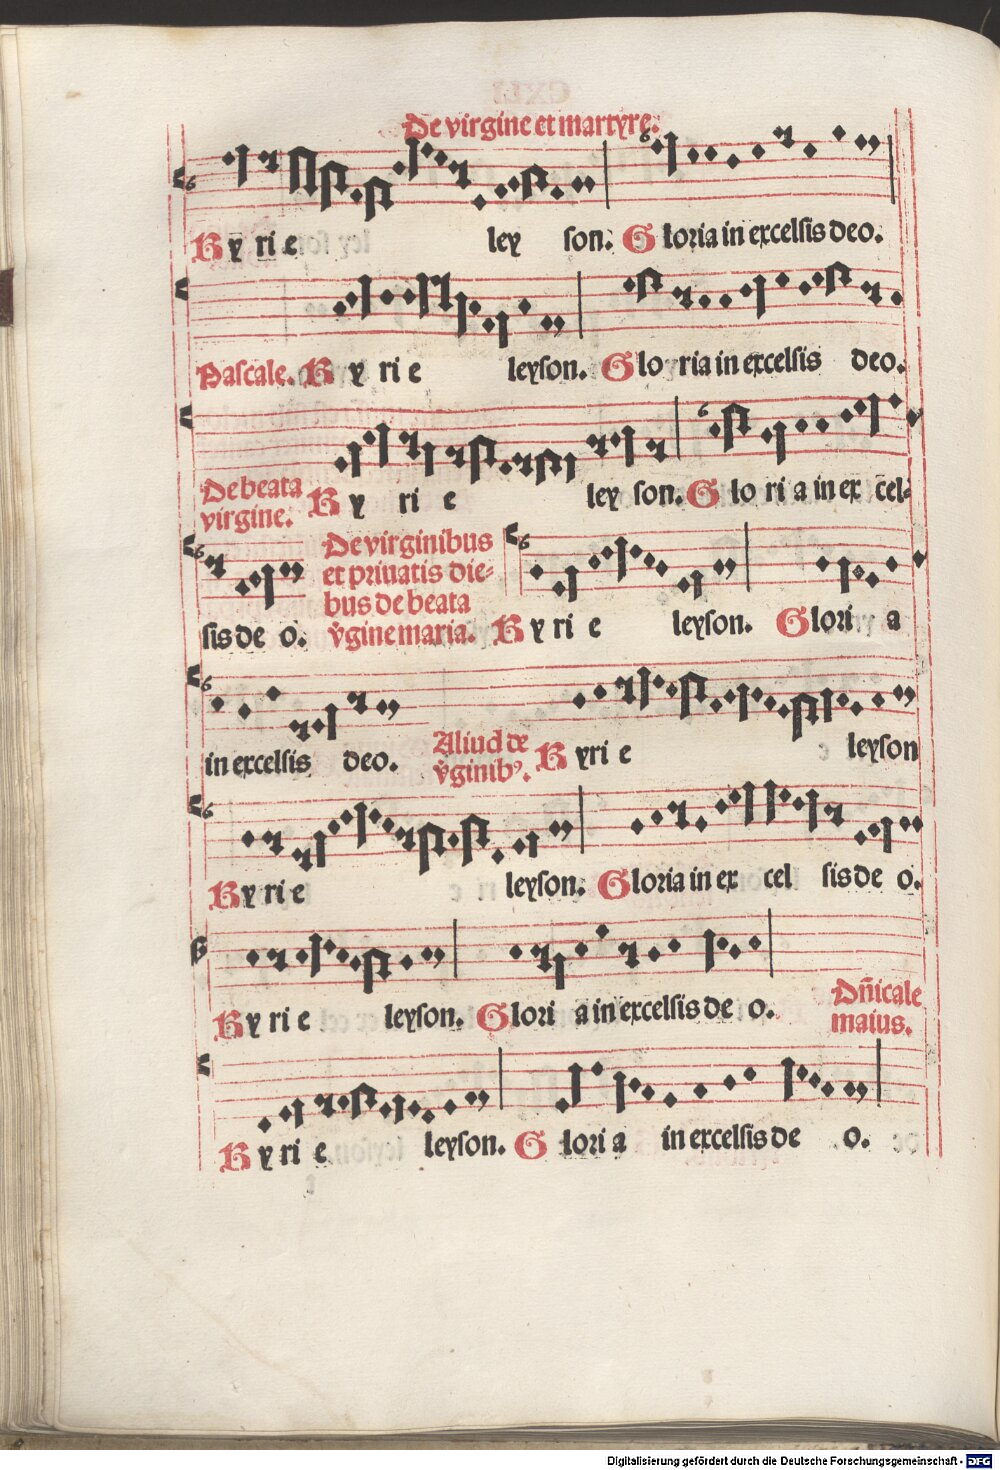 De virgine et martyre.
Kyrie ley son. Gloria in excelsis deo.
Pascale. Kyrie leyson. Gloria in excelsis deo.
De beata Kyrie ley son. Gloria in excel-
virgine.
sis de o. De virginibus Kyrie leyson. Gloria
et priuatis die-
bus de beata
v̄gine maria.
in excelsis deo. Aliud de Kyrie leyson
v̄ginibꝰ.
Kyrie leyson. Gloria in excelsis deo.
Kyrie leyson. Gloria in excelsis de o. Dn̄icale
maius.
Kyrie leyson. Gloria in excelsis de o.
Digitalisierung gefördert durch die Deutsche Forschungsgemeinschaft - DFG